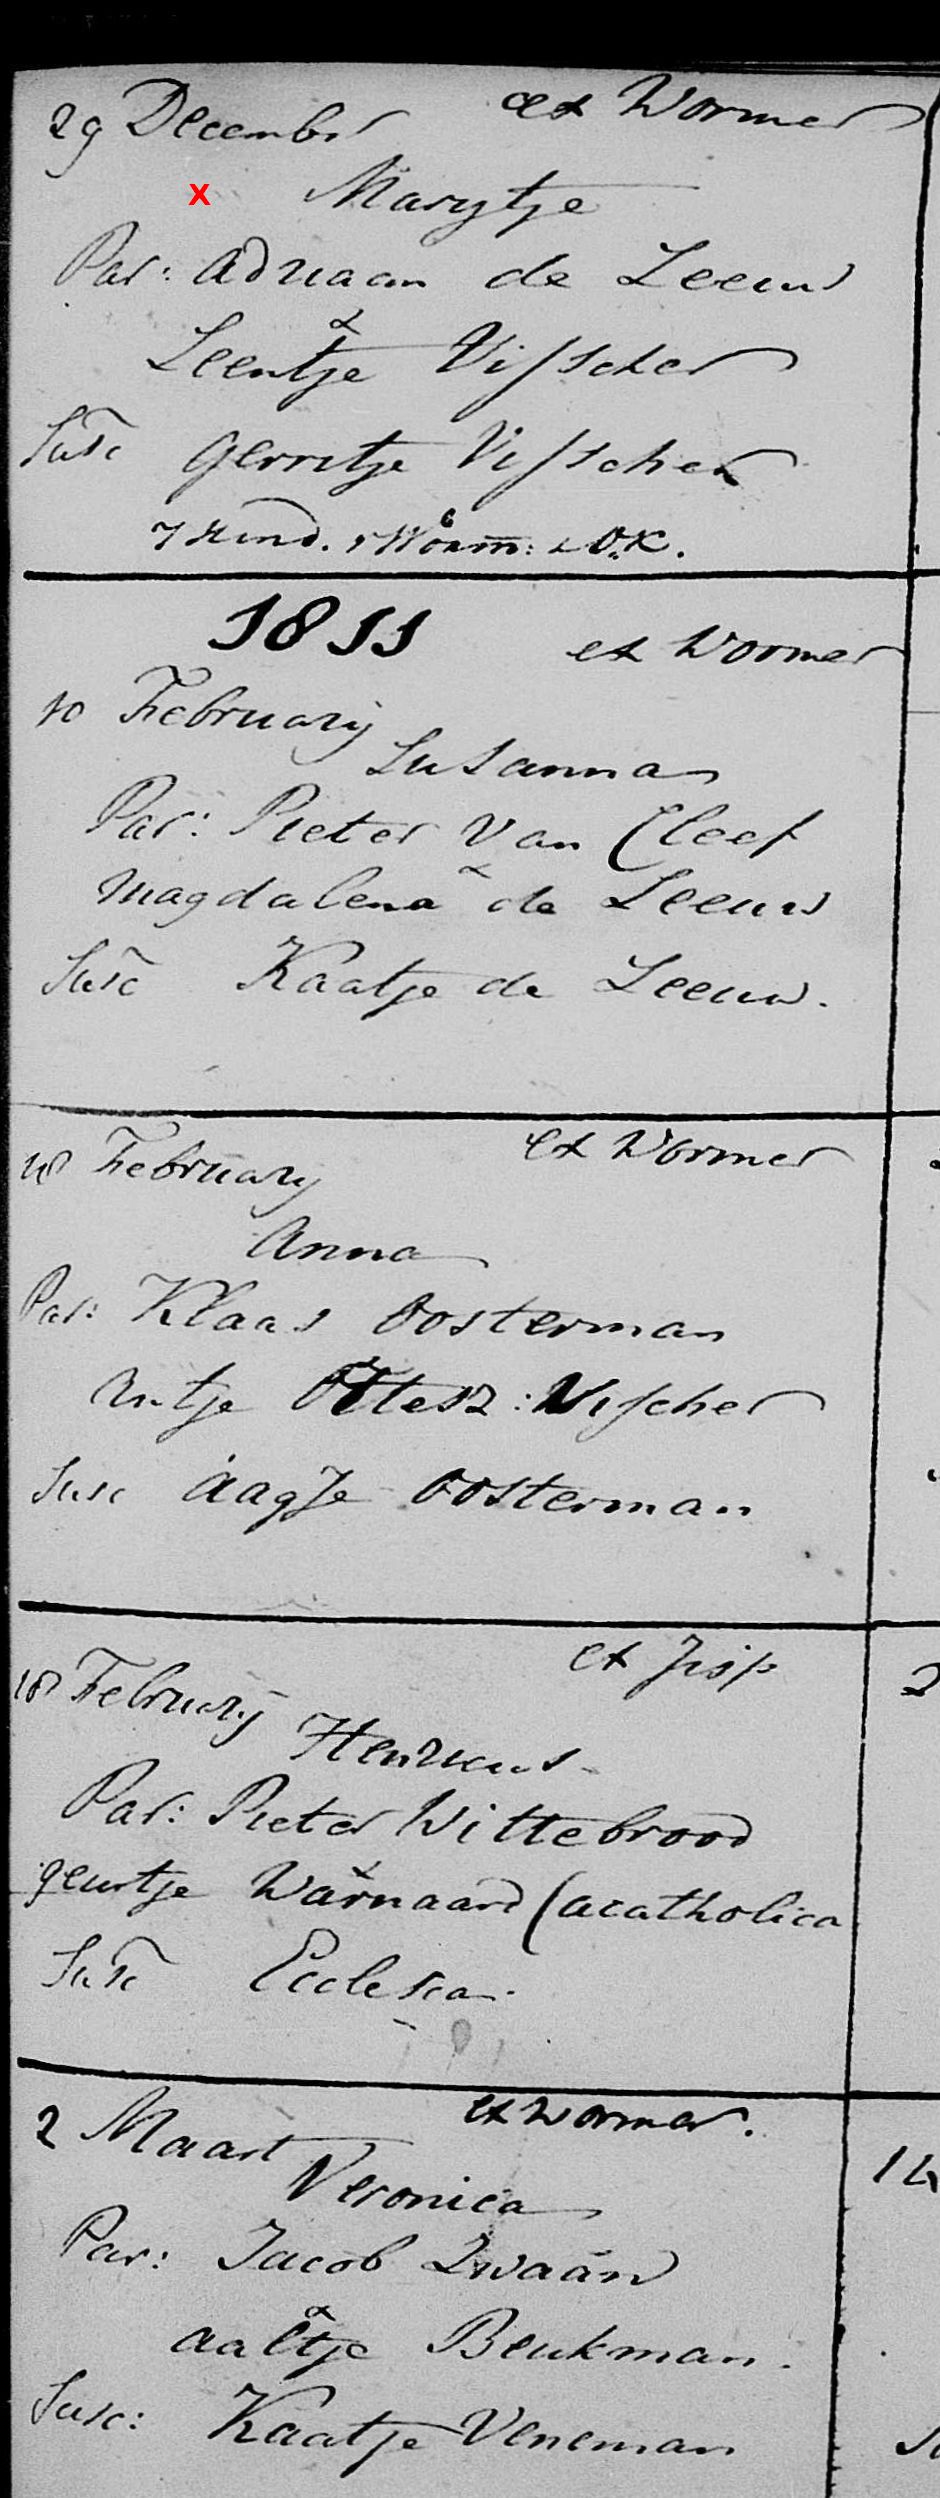 29 December ex Wormer
x Marytje
Par: Adriaan de Leeuw
&
Leentje Visscher
Susc Gerritje Visscher
7 Kind. 6 Worm: & O.K.
1811 ex Wormer
10 February
Susanna
Par: Pieter Van Cleef
&
Magdalena de Leeuw
Susc Kaatje de Leeuw.
18 February ex Wormer
Anna
Par: Klaas Oosterman
Antje Ottesz: Visscher
Susc Aagje Oosterman
18 February ex Jisp
Henricus
Par: Pieter Wittebrood
&
Geurtje Warnaard (acatholica
Susc Ecclesia.
2 Maart ex Wormer.
Veronica
Par: Jacob Zwaan
&
Aaltje Beukman.
Susc: Kaatje Veneman